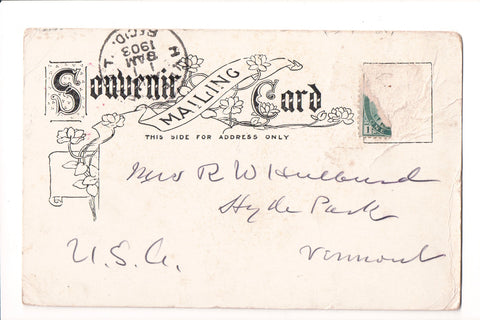 Souvenir
MAILING
Card
THIS SIDE FOR ADDRESS ONLY
8 AM
1903
REC'D.
Mrs R W Hulburd
Hyde Park
U.S.A. Vermont